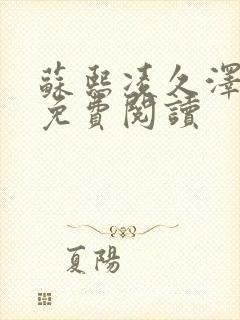 蘇熙凌久澤
免費閱讀
夏陽